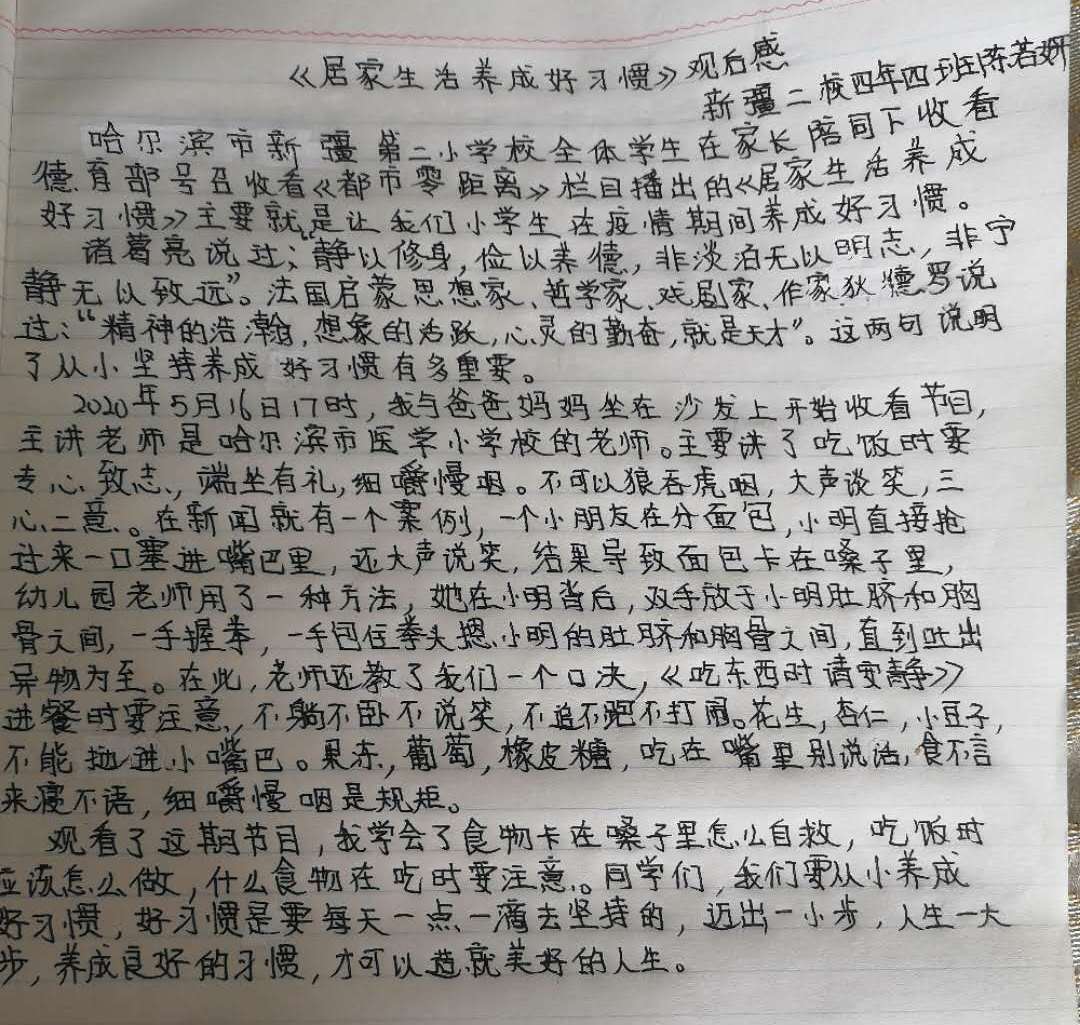 《居家生活养成好习惯》观后感
新疆二校四年四班陈若妍
哈尔滨市新疆第二小学校全体学生在家长陪同下收看
德育部号召收看《都市零距离》栏目播出的《居家生活养成
好习惯》主要就是让我们小学生在疫情期间养成好习惯。
诸葛亮说过:“静以修身,俭以养德,非淡泊无以明志,非宁
静无以致远”。法国启蒙思想家、哲学家、戏剧家、作家狄德罗说
过:“精神的浩瀚,想象的活跃,心灵的勤奋,就是天才”。这两句说明
了从小坚持养成好习惯有多重要。
2020年5月16日17时,我与爸爸妈妈坐在沙发上开始收看节目,
主讲老师是哈尔滨市医学小学校的老师。主要讲了吃饭时要
专心致志,端坐有礼,细嚼慢咽。不可以狼吞虎咽,大声谈笑,三
心二意。在新闻就有一个案例,一个小朋友在分面包,小明直接抢
过来一口塞进嘴巴里,还大声说笑,结果导致面包卡在嗓子里,
幼儿园老师用了一种方法,她在小明背后,双手放于小明肚脐和胸
骨之间,一手握拳,一手包住拳头摁小明的肚脐和胸骨之间,直到吐出
异物为至。在此,老师还教了我们一个口决,《吃东西时请安静》
进餐时要注意,不躺不卧不说笑,不追不跑不打闹。花生,杏仁,小豆子,
不能抛进小嘴巴。果冻,葡萄,橡皮糖,吃在嘴里别说话,食不言
来寝不语,细嚼慢咽是规矩。
观看了这期节目,我学会了食物卡在嗓子里怎么自救,吃饭时
应该怎么做,什么食物在吃时要注意。同学们,我们要从小养成
好习惯,好习惯是要每天一点一滴去坚持的,迈出一小步,人生一大
步,养成良好的习惯,才可以造就美好的人生。